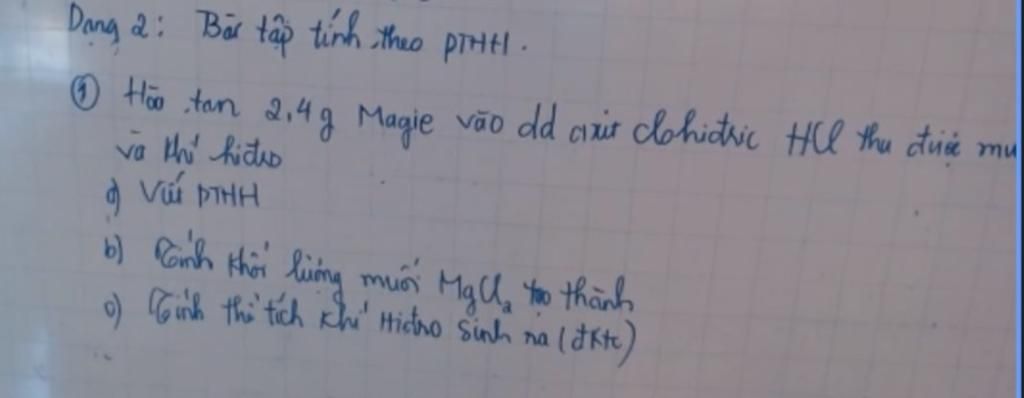 Dạng 2: Bài tập tính theo PTHH.
① Hòa tan 2,4g Magie vào dd axit clohidric HCl thu được mu
và khí hidro
a) Viết PTHH
b) Tính khối lượng muối MgCl₂ tạo thành
c) Tính thể tích khí Hidro sinh ra (đktc)